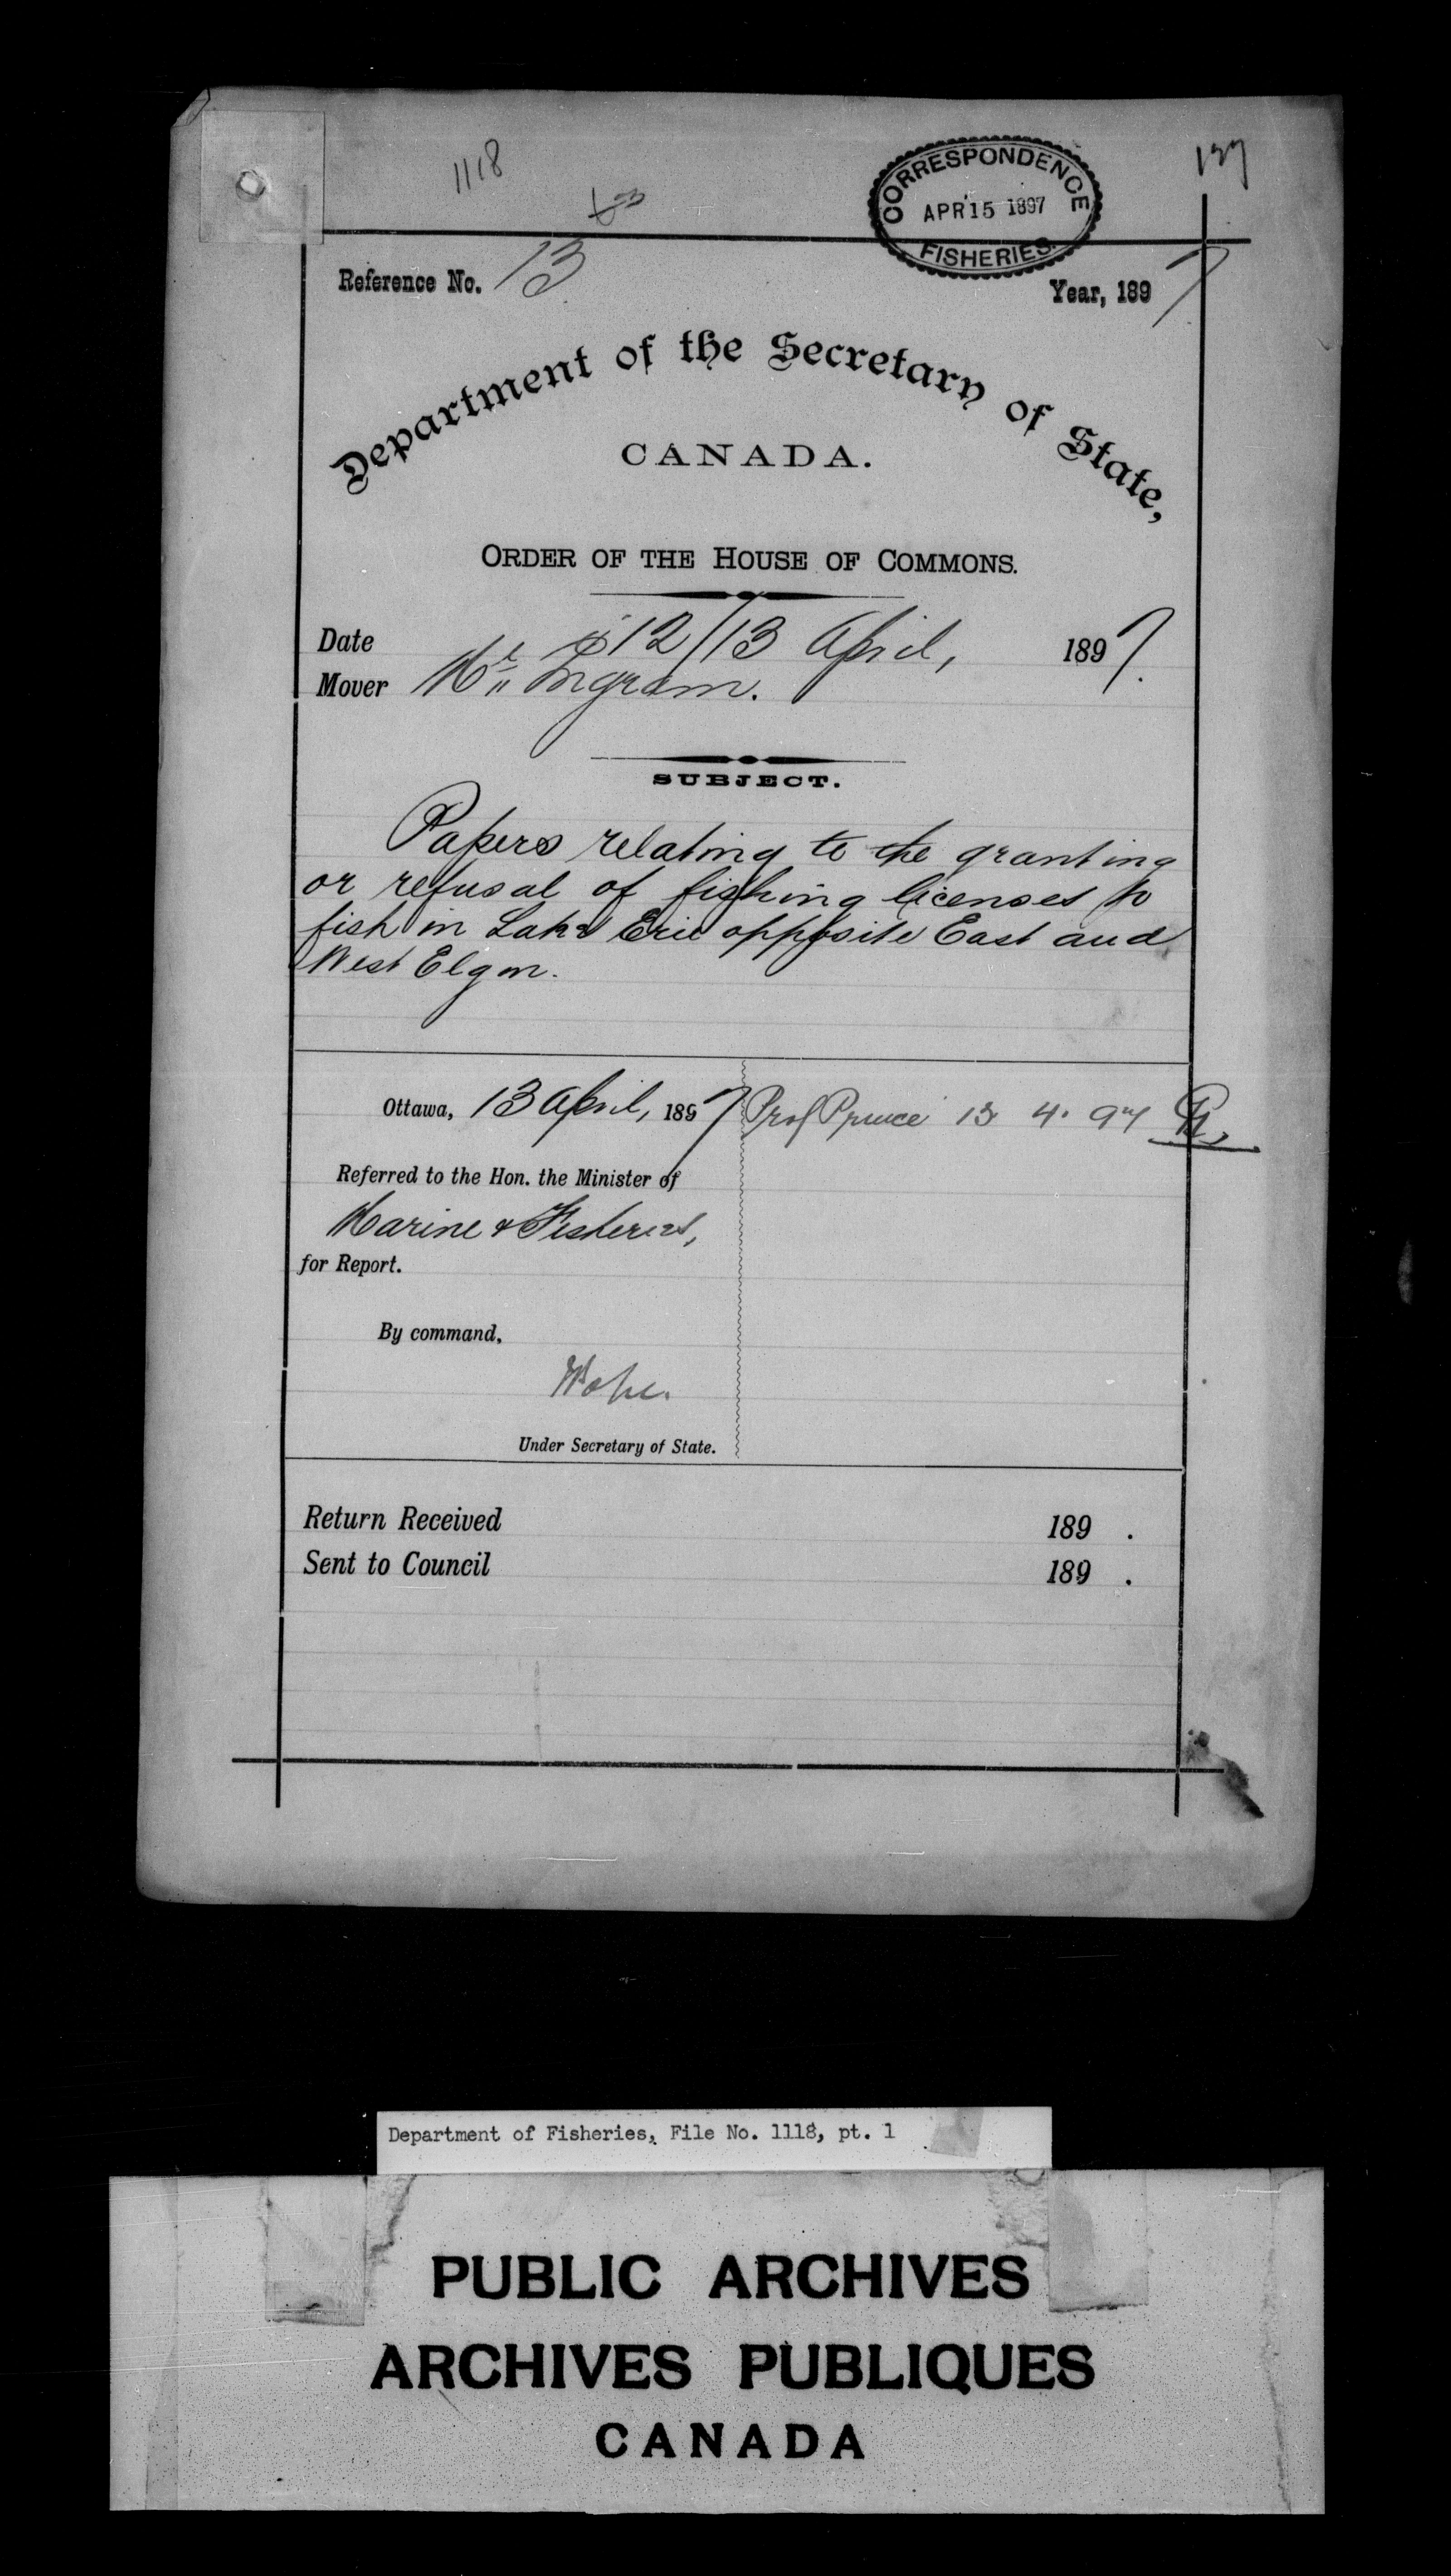 1118
CORRESPONDENCE
APR 15 1897
FISHERIES.
Reference No. 13
Year, 1897
Department of the Secretary of State,
CANADA.
ORDER OF THE HOUSE OF COMMONS.
Date 12/13 April, 1897.
Mover Mr Ingram.
SUBJECT.
Papers relating to the granting
or refusal of fishing licenses to
fish in Lake Erie opposite East and
West Elgin.
Ottawa, 13 April, 1897
Prof Prince 13 4. 97
Referred to the Hon. the Minister of
Marine & Fisheries,
for Report.
By command,
Under Secretary of State.
Return Received 189 .
Sent to Council 189 .
Department of Fisheries, File No. 1118, pt. 1
PUBLIC ARCHIVES
ARCHIVES PUBLIQUES
CANADA